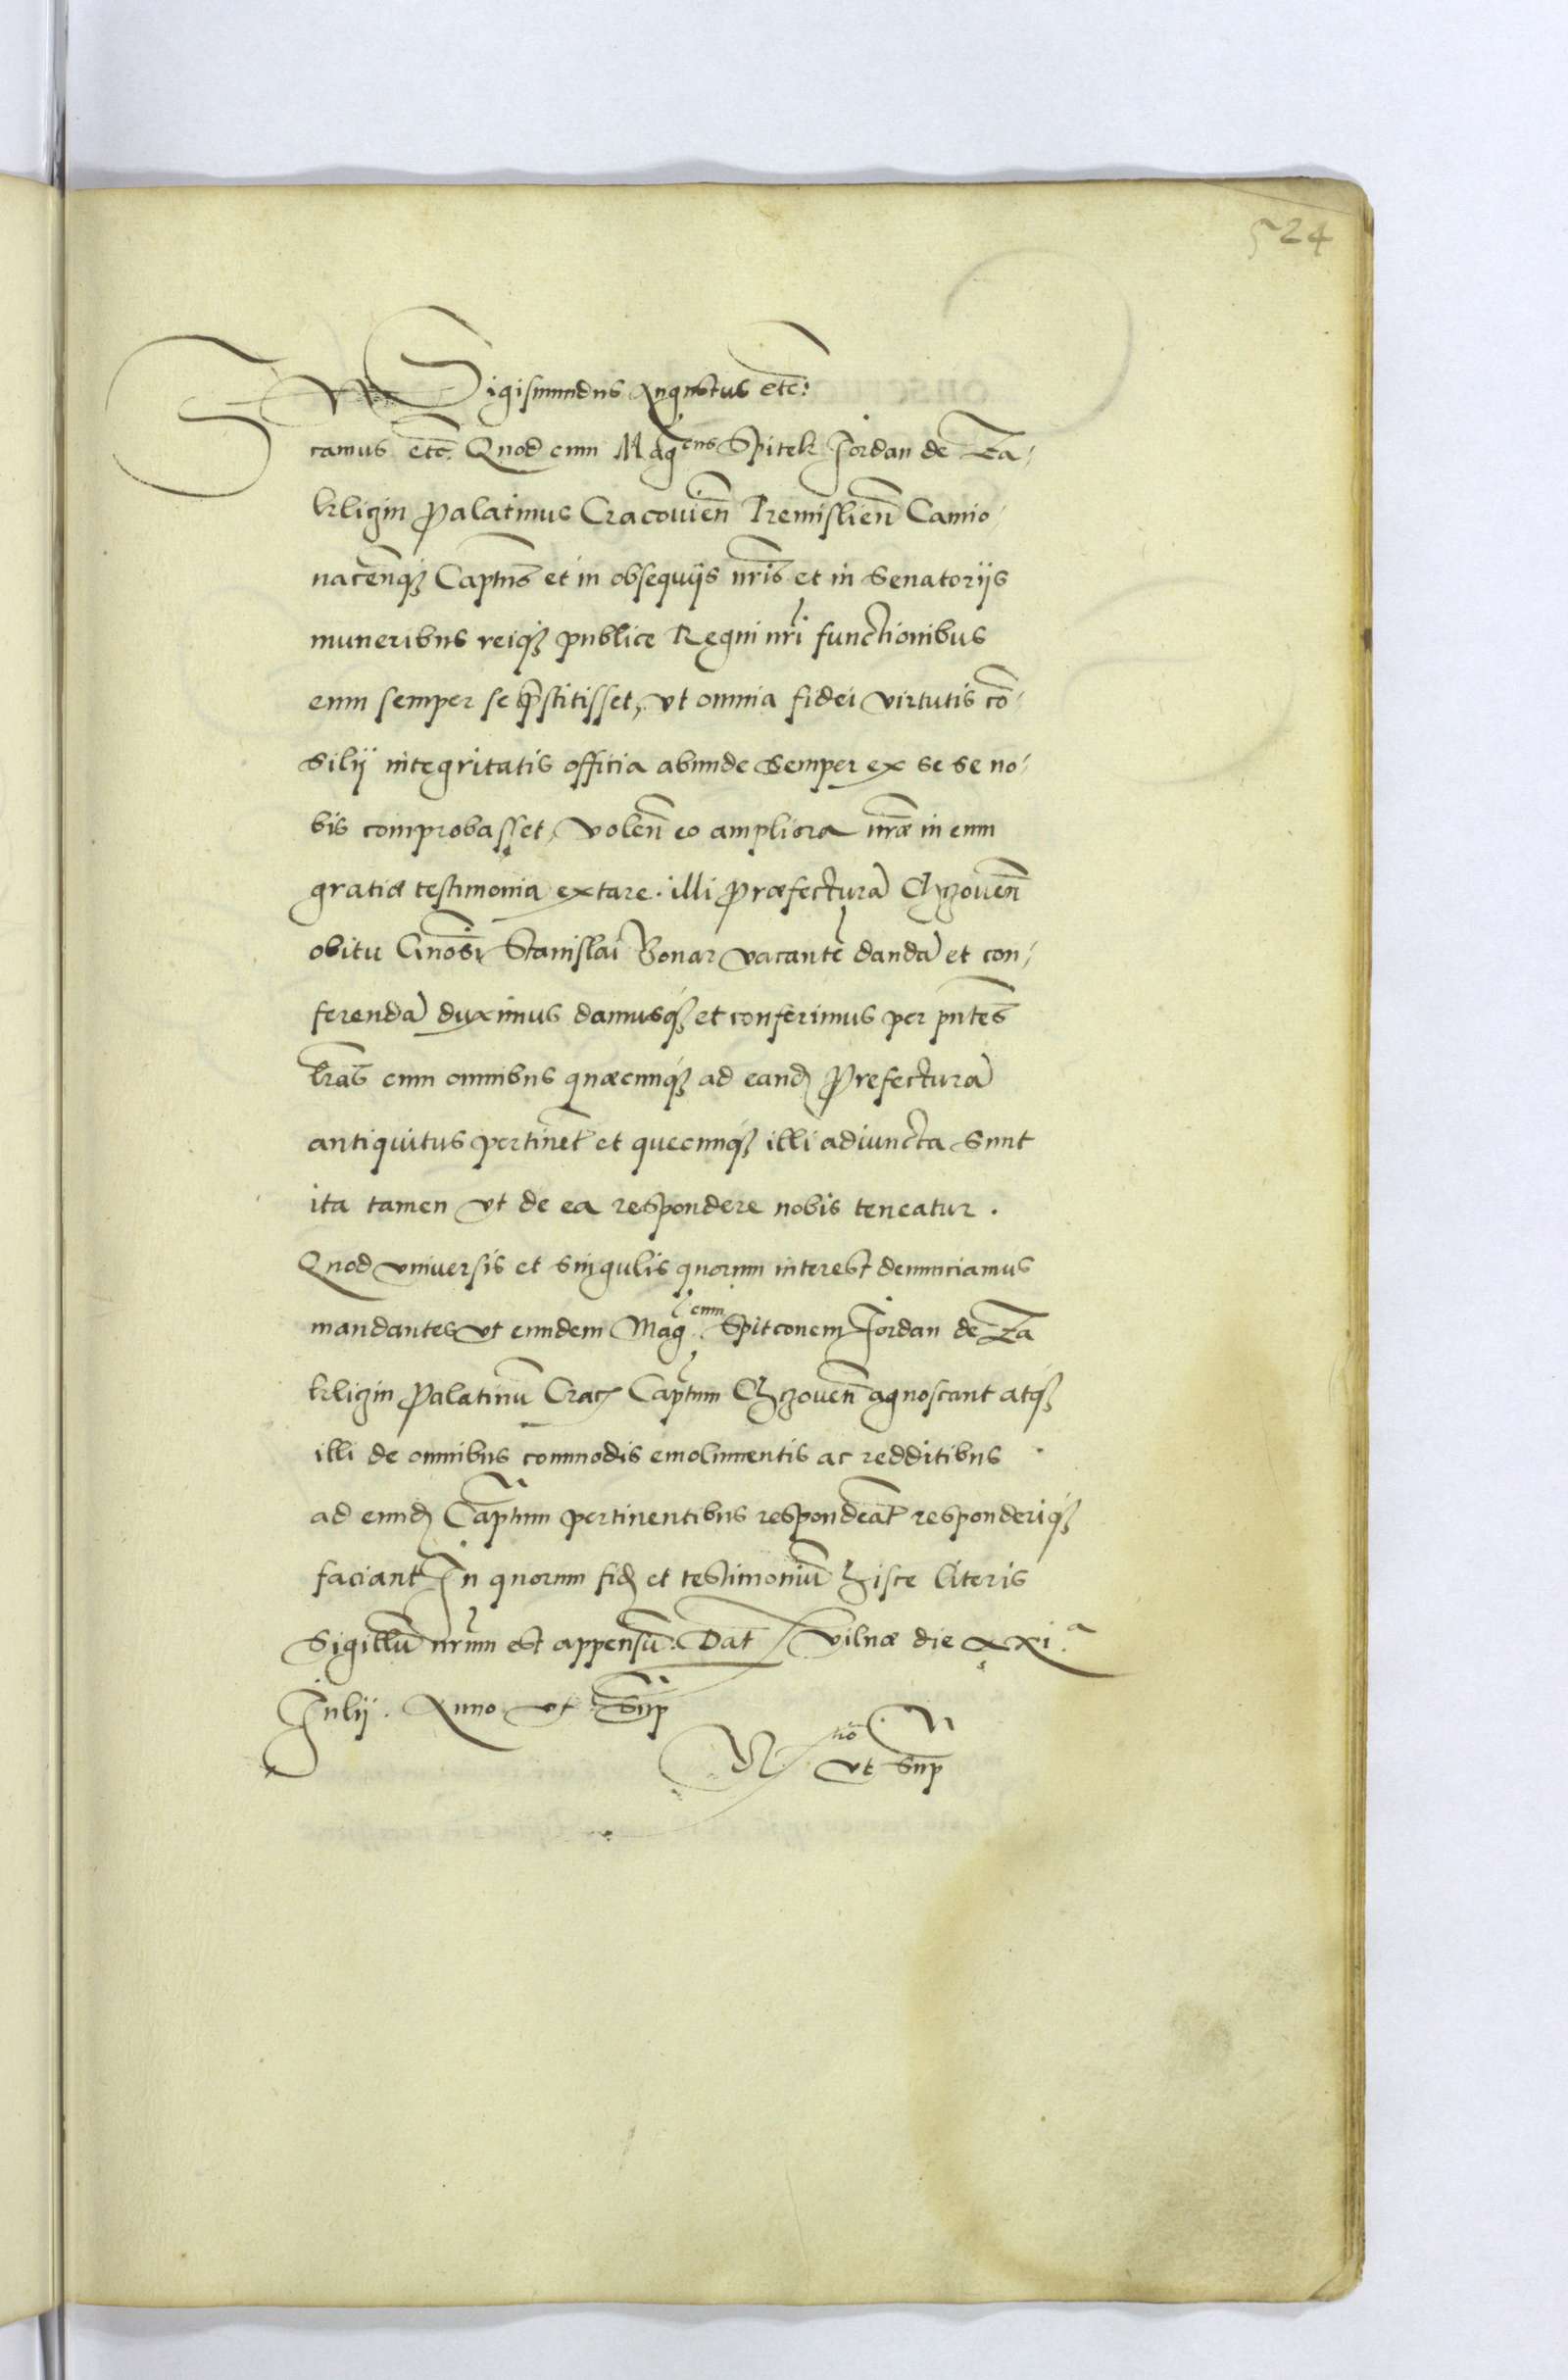 524
Sigismundus Augustus etc:
camus etc. Quod cum Mag^cus Spitek Jordan de Za-
kligin Palatinus Cracovien Premislien Camio-
nacenqȝ Captns et in obsequijs nris et in Senatorijs
muneribus reiqȝ publice Regni nri functionibus
eum semper se pstitisset, vt omnia fidei virtutis co-
silij integritatis officia abunde semper ex se se no-
bis comprobasset, volen eo ampliora nræ in eum
gratiæ testimonia extare. illi Præfectura Chzoven
obitu Gnosi Stanislai Bonar vacante danda et con-
ferenda duximus damusqȝ et conferimus per pntes
lras cum omnibus quæcunqȝ ad eand Prefectura
antiquitus pertinet et quecunqȝ illi adiuncta sunt
ita tamen vt de ea respondere nobis teneatur.
Quod vniversis et singulis quorum interest denunciamus
mandantes vt eundem Mag^cum Spitconem Jordan de Za
kligin Palatinu Crac Captum Chzoven agnoscant atqȝ
illi de omnibus commodis emolumentis ac redditibus
ad eund Captum pertinentibus respondeat responderiqȝ
faciant In quorum fid et testimoniu hisce literis
Sigillu nrum est appensu. Dat Vilnæ die xxi^a
Julij. Anno vt sup
R^tio vt sup